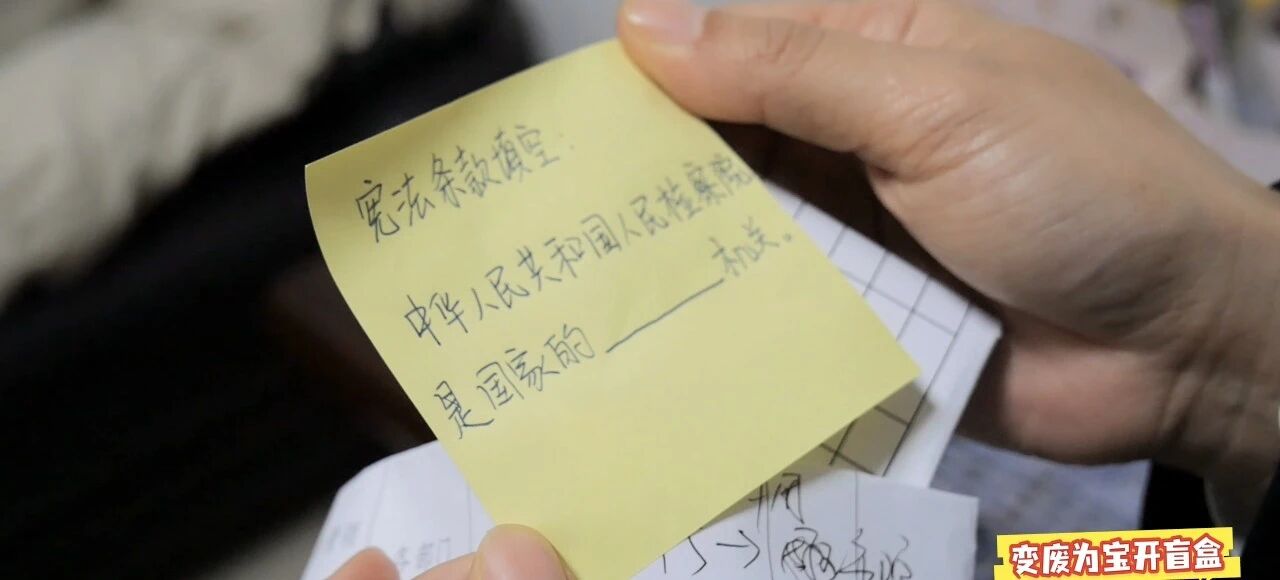 宪法条款填空：
中华人民共和国人民检察院
是国家的______机关。
变废为宝开盲盒